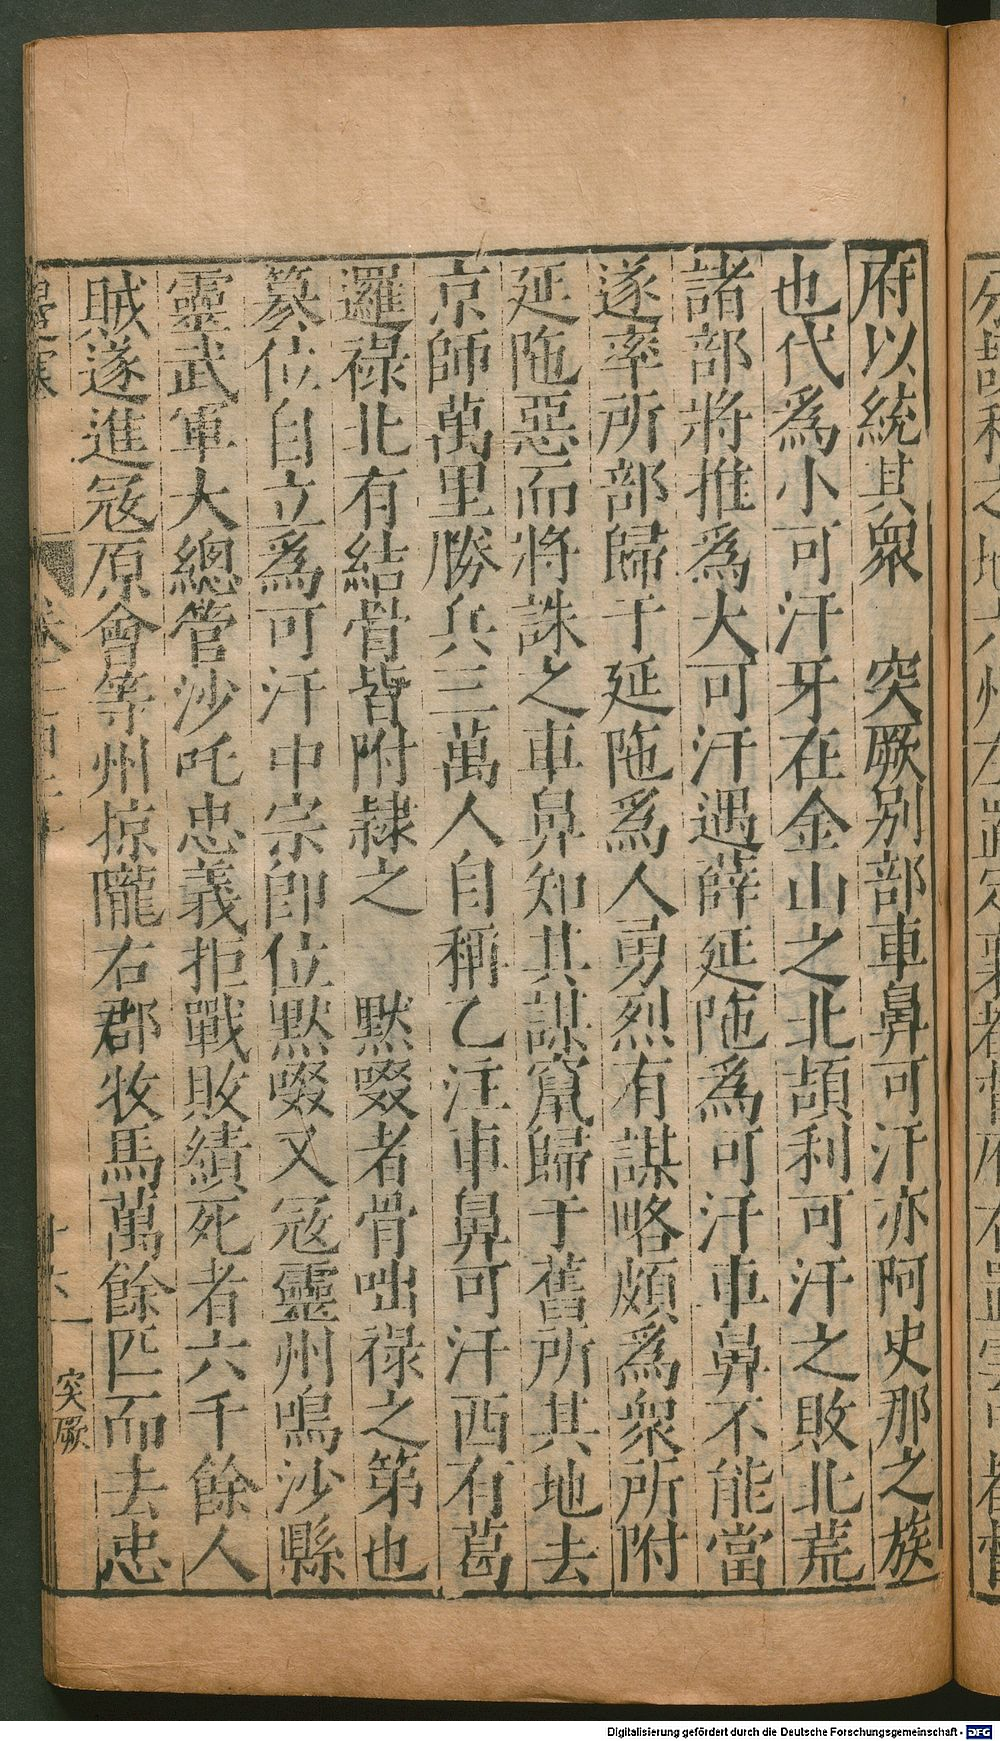 府以統其衆　突厥別部車鼻可汗亦阿史那之族
也代爲小可汗牙在金山之北頡利可汗之敗北荒
諸部將推爲大可汗遇薛延陁爲可汗車鼻不能當
遂率所部歸于延陁爲人勇烈有謀略頗爲衆所附
延陁惡而將誅之車鼻知其謀竄歸于舊所其地去
京師萬里勝兵三萬人自稱乙注車鼻可汗西有葛
邏祿北有結骨皆附隷之　默啜者骨咄祿之第也
篡位自立爲可汗中宗卽位默啜又冦靈州鳴沙縣
靈武軍大總管沙吒忠義拒戰敗績死者六千餘人
賊遂進冦原會等州掠隴右郡牧馬萬餘匹而去忠
突厥
Digitalisierung gefördert durch die Deutsche Forschungsgemeinschaft - DFG